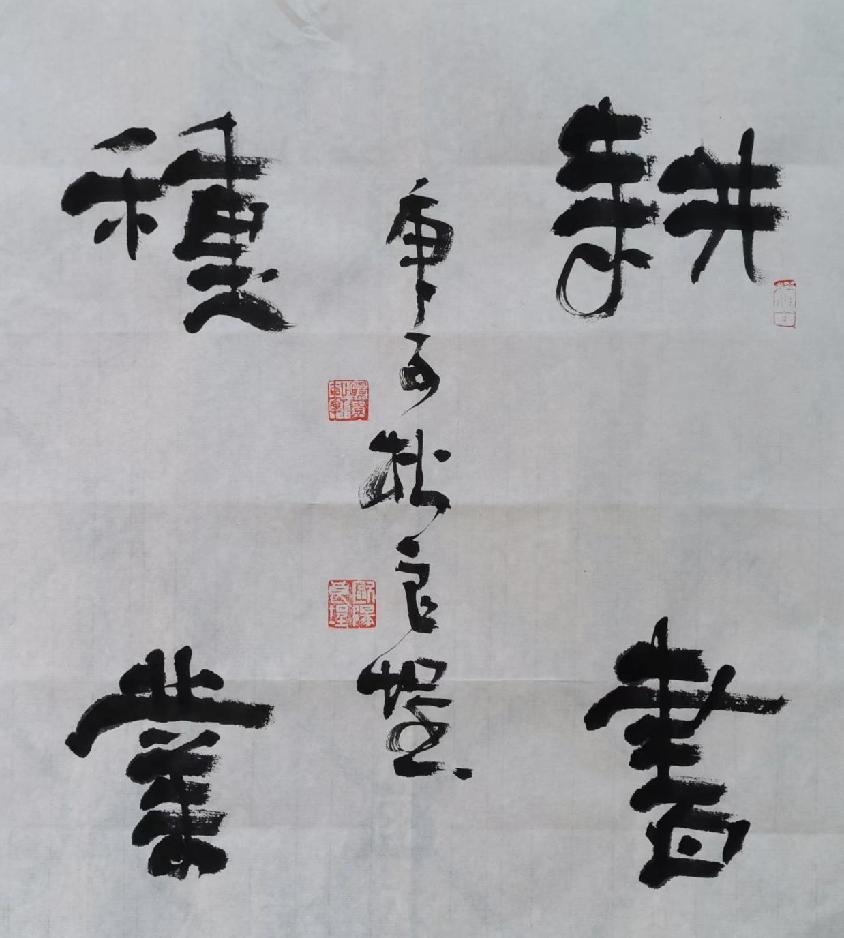 耕書
種業
庚子秋良堃